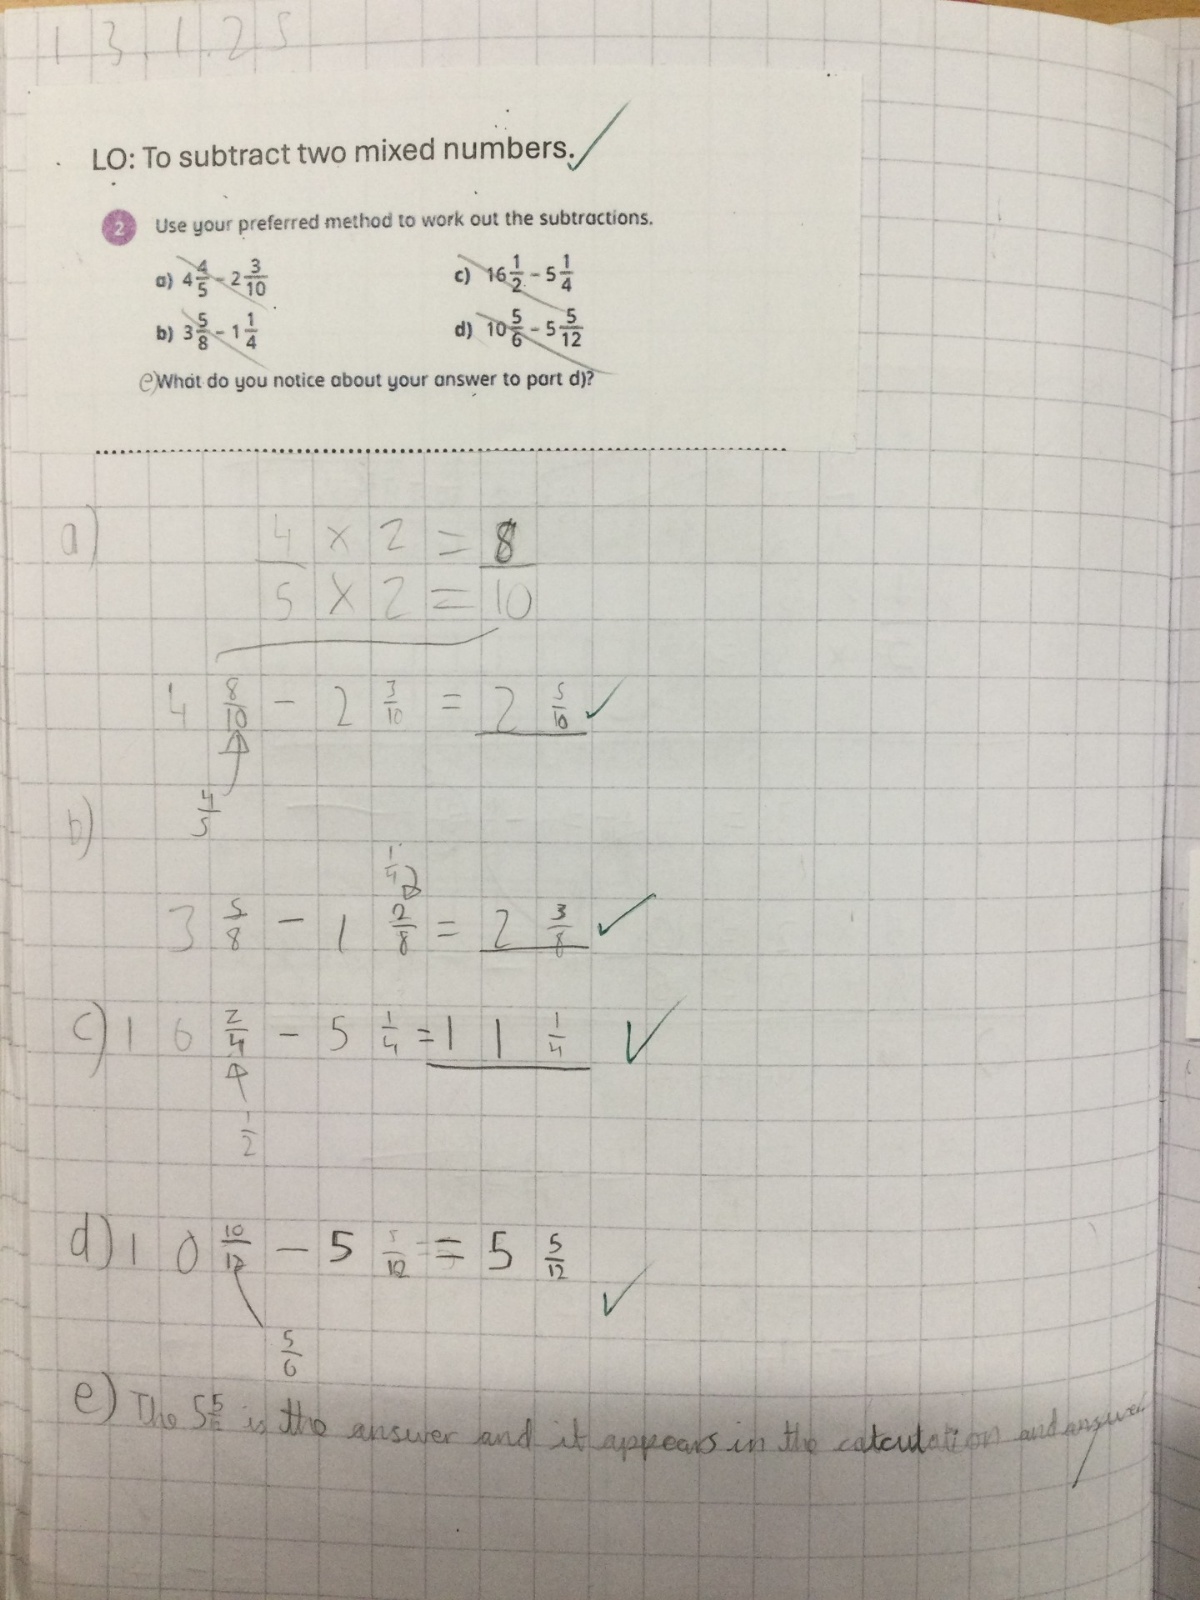 13.1.25
LO: To subtract two mixed numbers.
2 Use your preferred method to work out the subtractions.
a) 4 4/5 - 2 3/10 c) 16 1/2 - 5 1/4
b) 3 5/8 - 1 1/4 d) 10 5/6 - 5 5/12
e) What do you notice about your answer to part d)?
a) 4 × 2 = 8
5 × 2 = 10
4 8/10 - 2 3/10 = 2 5/10
4/5
b)
1/4
3 5/8 - 1 2/8 = 2 3/8
c) 16 2/4 - 5 1/4 = 11 1/4
1/2
d) 10 10/12 - 5 5/12 = 5 5/12
5/6
e) The is the answer and it appears in the calculation and answer